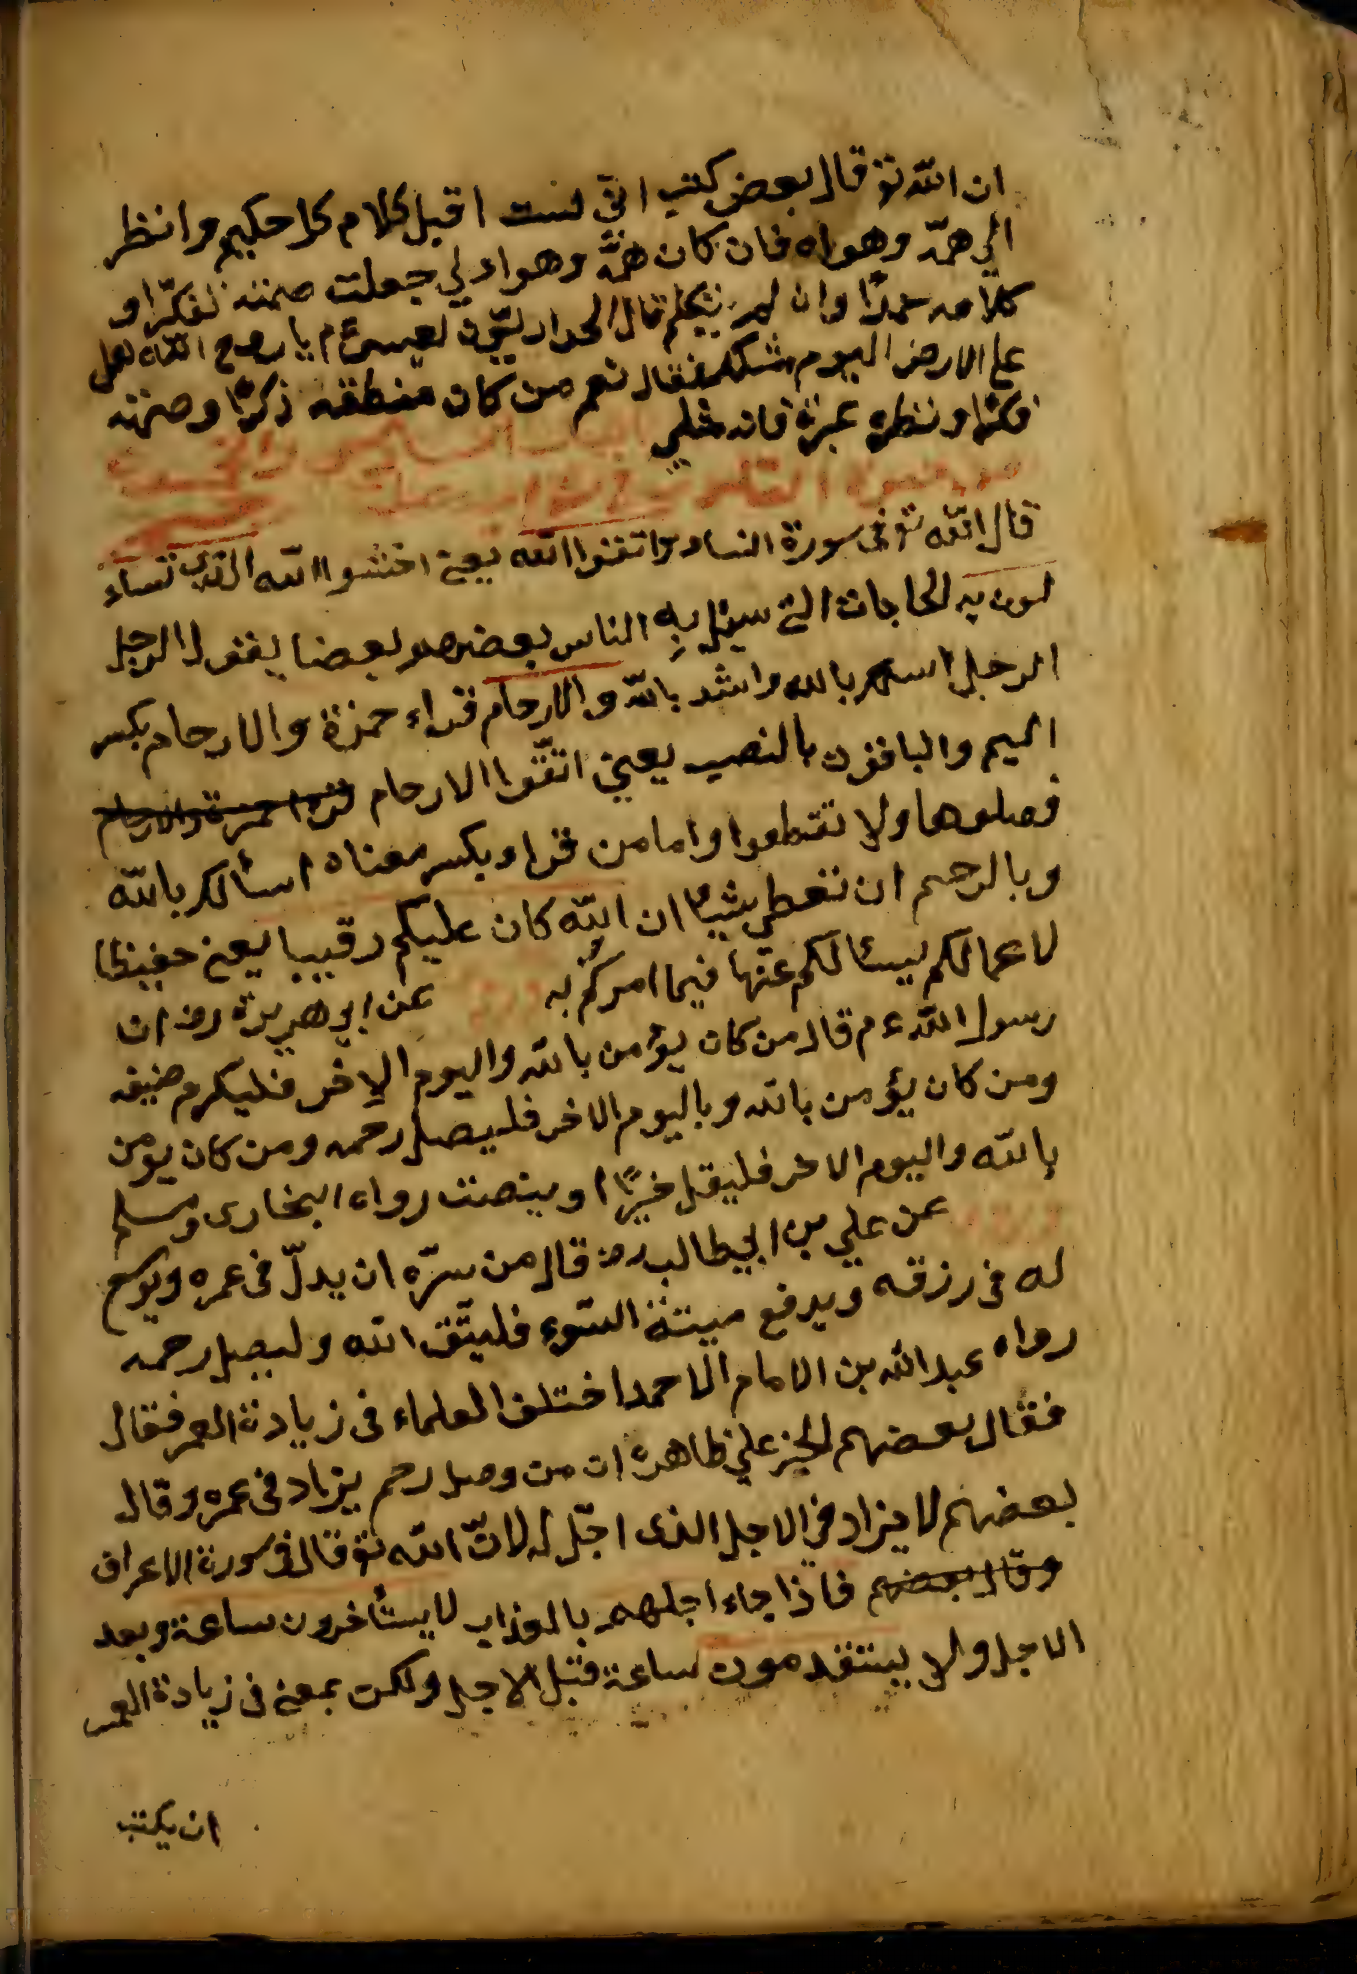 ان الله تع قال بعض كتب اني لست اقبل كلام كل حكيم وانظر
الي همّه وهواه فان كان همّه وهواه لي جعلت صمته تفكّرا و
كلامه حمدًا وان لم يتكلم قال الحواريّون لعيسى ءم يا روح الله هل
على الارض اليوم مثلك فقال نعم من كان منطقه ذكرًا وصمته
فكرًا ونظره عبرة فانه مثلي
الباب السادس والخمسون
قال الله تع فى سورة النساء واتقوا الله يعني اخشوا الله الذى تساء
لون به الحاجات التي سيئل به الناس بعضهم بعضا يقول الرجل
الرجل اسئلك بالله وانشد بالله والارحام قراء حمزة والارحام بكسر
الميم والباقون بالنصب يعني اتقّوا الارحام قراء حمزة والارحام
فصلوها ولا تقطعوا واما من قراء بكسر معناه اسألك بالله
وبالرحم ان تعطي شيأ ان الله كان عليكم رقيبا يعني حفيظا
لاعمالكم يسئالكم عنها فيما امركم به عن ابي هريرة رض ان
رسول الله ءم قال من كان يؤمن بالله واليوم الاخر فليكرم ضيفه
ومن كان يؤمن بالله وباليوم الاخر فليصل رحمه ومن كان يؤمن
بالله واليوم الاخر فليقل خيرًا او ينصت رواه البخارى ومسلم
عن علي بن ابي طالب رض قال من سرّه ان يدلّ فى عمره ويوسع
له فى رزقه ويدفع ميتة السّوء فليتّق الله وليصل رحمه
رواه عبد الله بن الامام الاحمد اختلف العلماء فى زيادة العمر فقال
فقال بعضهم الخبر على ظاهره ان من وصل رحم يزاد فى عمره وقال
بعضهم لا يزاد فى الاجل الذى اجّل له لانّ الله تع قال فى سورة الاعراف
وقال بعضهم فاذا جاء اجلهم بالعذاب لا يستأخرون ساعة وبعد
الاجل ولا يستقدمون ساعة قبل الاجل ولكن بمعنى فى زيادة العمر
ان يكتب